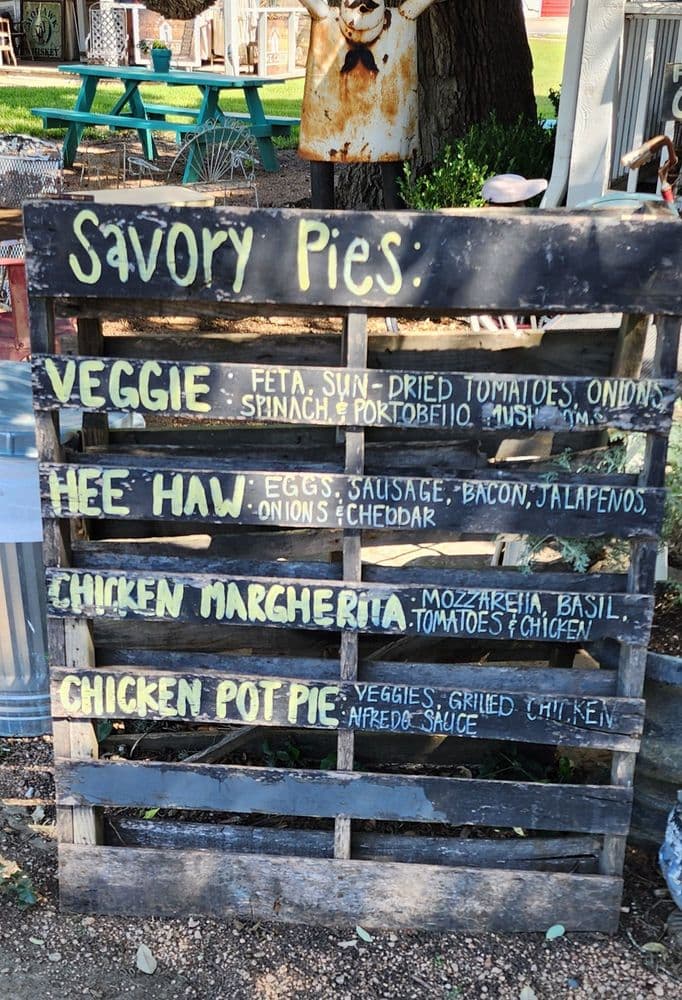 WHISKEY
Savory Pies:
VEGGIE: FETA, SUN-DRIED TOMATOES, ONIONS,
SPINACH & PORTOBELLO
HEE HAW: EGGS, SAUSAGE, BACON, JALAPENOS,
ONIONS & CHEDDAR
CHICKEN MARGHERITA: MOZZARELLA, BASIL,
TOMATOES & CHICKEN
CHICKEN POT PIE: VEGGIES, GRILLED CHICKEN
ALFREDO SAUCE